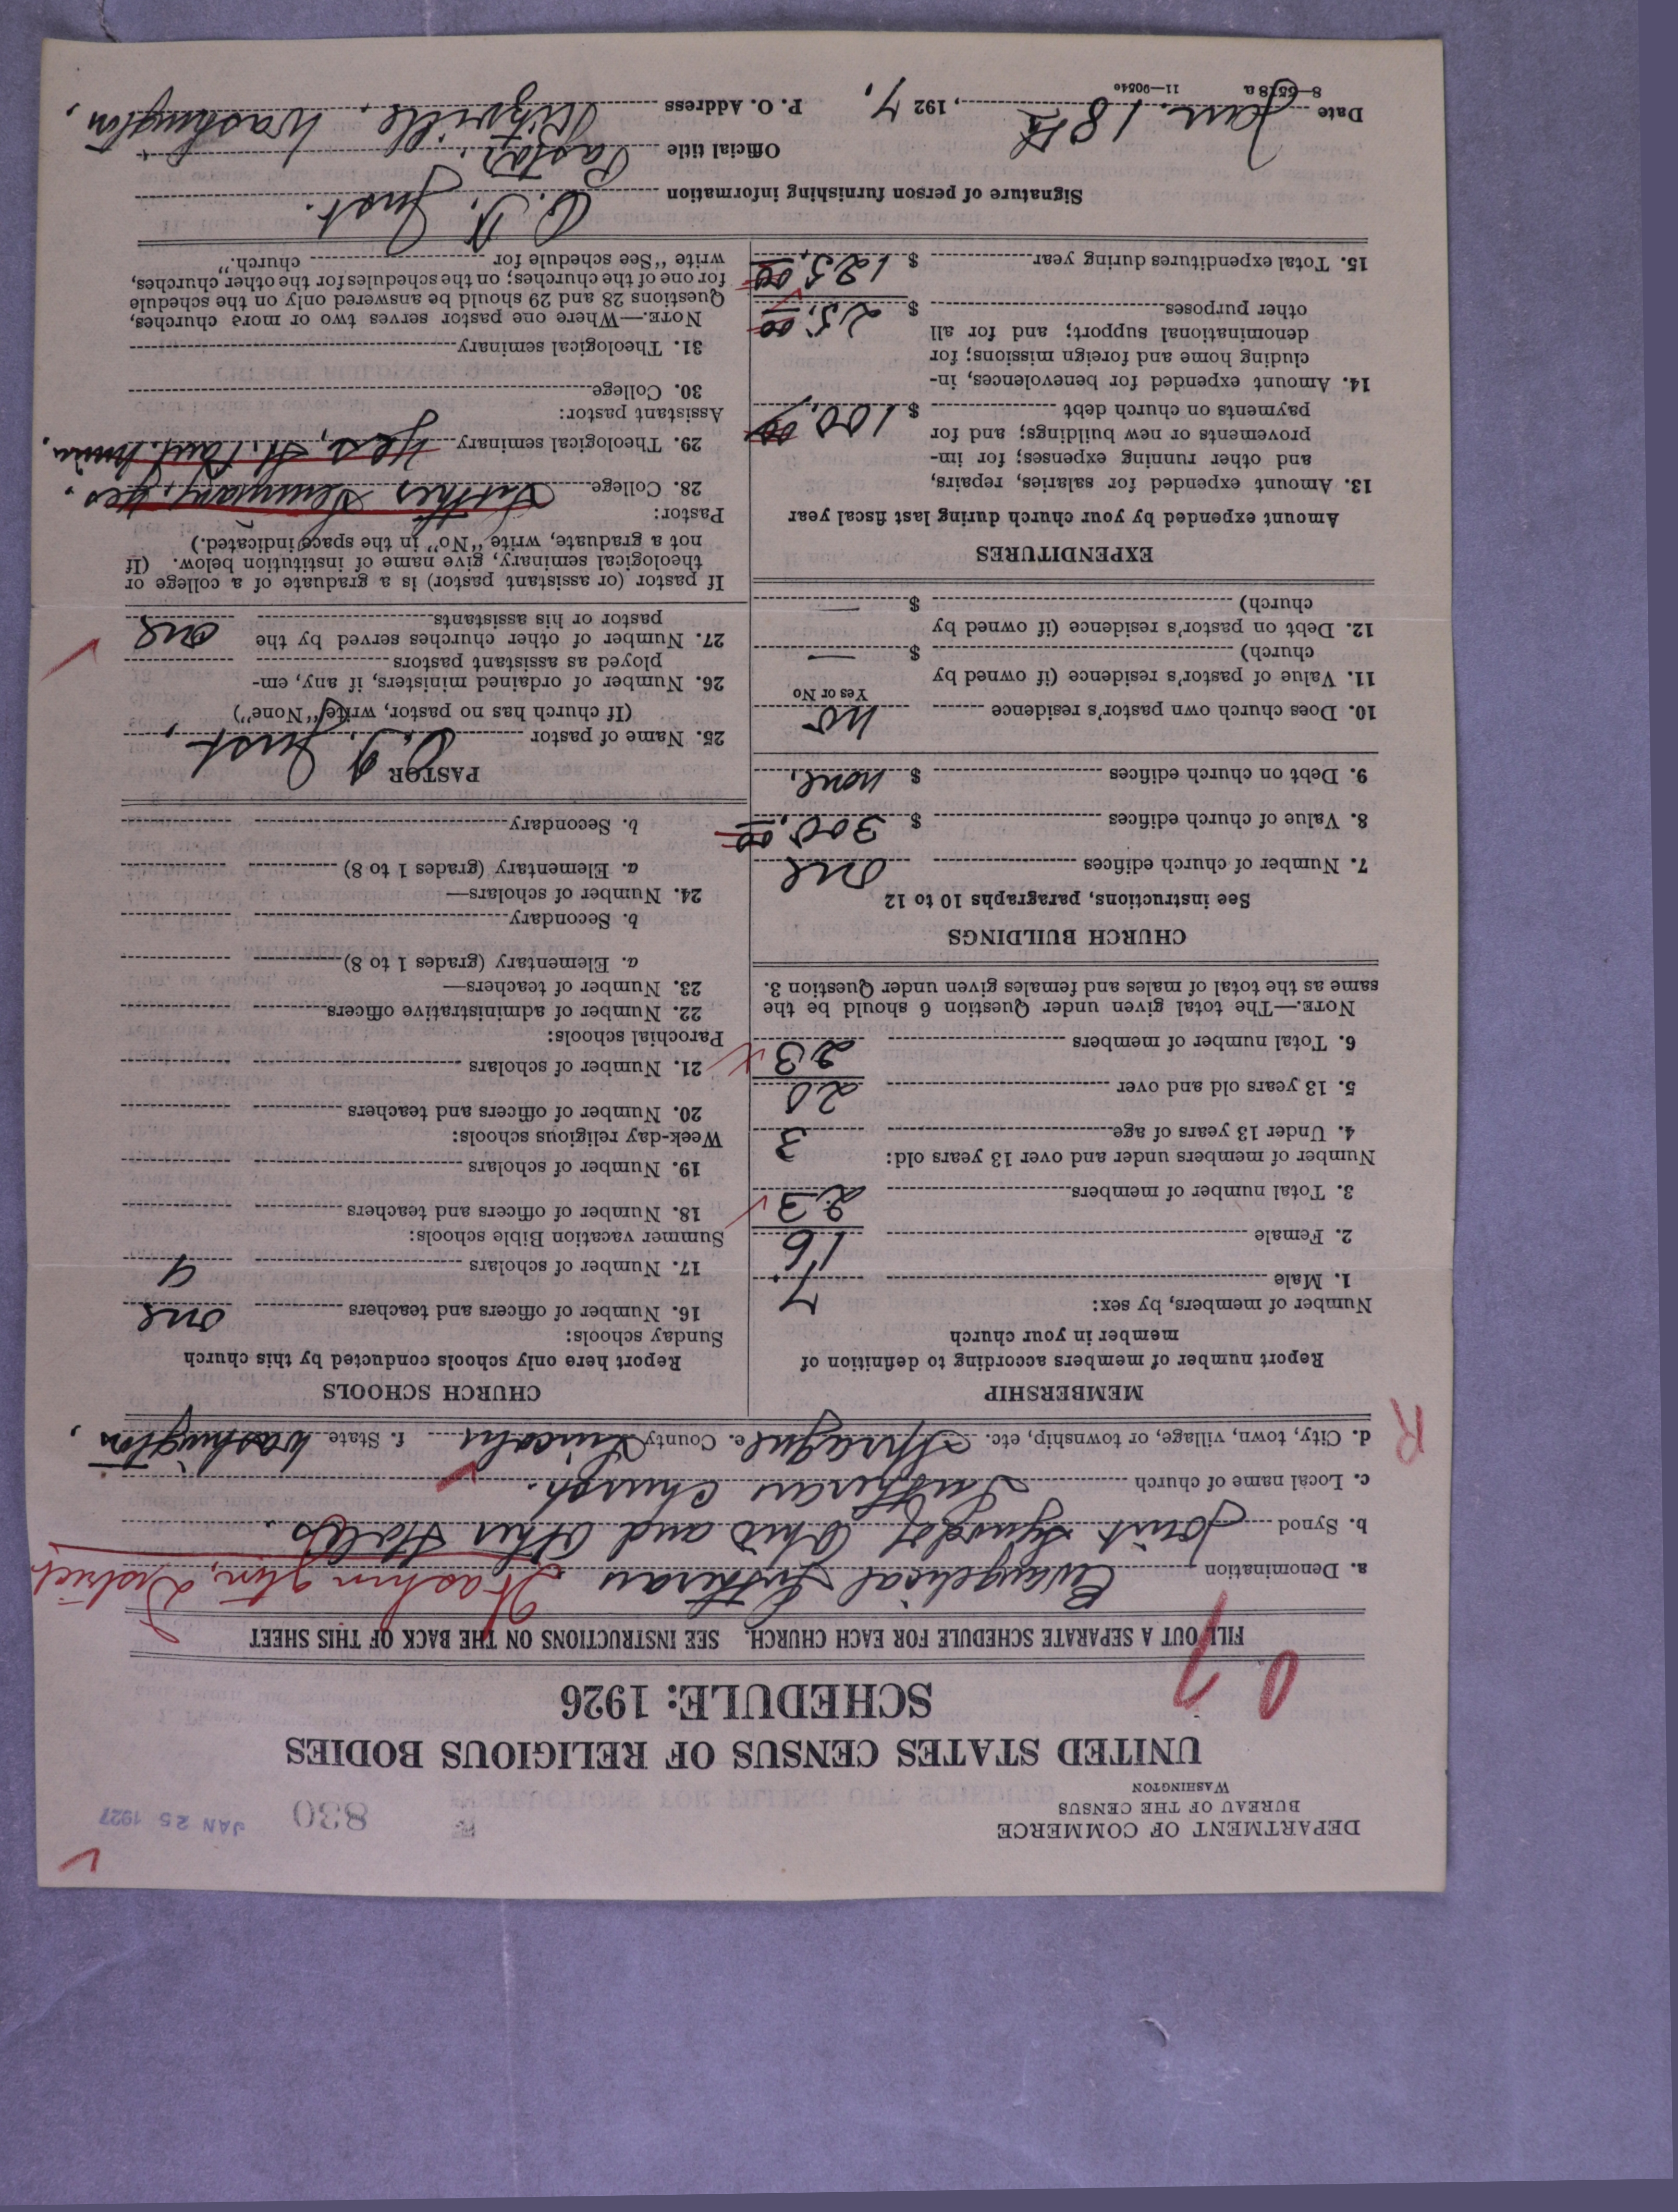 DEPARTMENT OF COMMERCE
BUREAU OF THE CENSUS
WASHINGTON
830
JAN 25 1927
UNITED STATES CENSUS OF RELIGIOUS BODIES
SCHEDULE: 1926
FILL OUT A SEPARATE SCHEDULE FOR EACH CHURCH. SEE INSTRUCTIONS ON THE BACK OF THIS SHEET
a. Denomination Evangelical Lutheran Washington, District
b. Synod Joint Synod of Ohio and Other States.
c. Local name of church Lutheran Church.
d. City, town, village, or township, etc. Sprague e. County Lincoln f. State Washington,
R
MEMBERSHIP
Report number of members according to definition of
member in your church
Number of members, by sex:
1. Male 7
2. Female 16
3. Total number of members 23
Number of members under and over 13 years old:
4. Under 13 years of age 3
5. 13 years old and over 20
6. Total number of members 23
NOTE.—The total given under Question 6 should be the
same as the total of males and females given under Question 3.
CHURCH BUILDINGS
See instructions, paragraphs 10 to 12
7. Number of church edifices one
8. Value of church edifices $ 300.00
9. Debt on church edifices $ none.
10. Does church own pastor's residence no
Yes or No
11. Value of pastor's residence (if owned by
church) $ —
12. Debt on pastor's residence (if owned by
church) $ —
EXPENDITURES
Amount expended by your church during last fiscal year
13. Amount expended for salaries, repairs,
and other running expenses; for im-
provements or new buildings; and for
payments on church debt $ 100.00
14. Amount expended for benevolences, in-
cluding home and foreign missions; for
denominational support; and for all
other purposes $ 25.00
15. Total expenditures during year $ 125.00
CHURCH SCHOOLS
Report here only schools conducted by this church
Sunday schools:
16. Number of officers and teachers one
17. Number of scholars 9
Summer vacation Bible schools:
18. Number of officers and teachers
19. Number of scholars
Week-day religious schools:
20. Number of officers and teachers
21. Number of scholars
Parochial schools:
22. Number of administrative officers
23. Number of teachers—
a. Elementary (grades 1 to 8)
b. Secondary
24. Number of scholars—
a. Elementary (grades 1 to 8)
b. Secondary
PASTOR
25. Name of pastor Just,
(If church has no pastor, write "None")
26. Number of ordained ministers, if any, em-
ployed as assistant pastors
27. Number of other churches served by the
pastor or his assistants one
If pastor (or assistant pastor) is a graduate of a college or
theological seminary, give name of institution below. (If
not a graduate, write "No" in the space indicated.)
Pastor:
28. College Luther Seminary, yes.
29. Theological seminary yes, St. Paul. Minn.
Assistant pastor:
30. College
31. Theological seminary
NOTE.—Where one pastor serves two or more churches,
Questions 28 and 29 should be answered only on the schedule
for one of the churches; on the schedules for the other churches,
write "See schedule for church."
Signature of person furnishing information Just.
Official title Pastor.
Date Jan. 18th, 1927. P. O. Address Ritzville, Washington,
8—6518 a 11—9054c